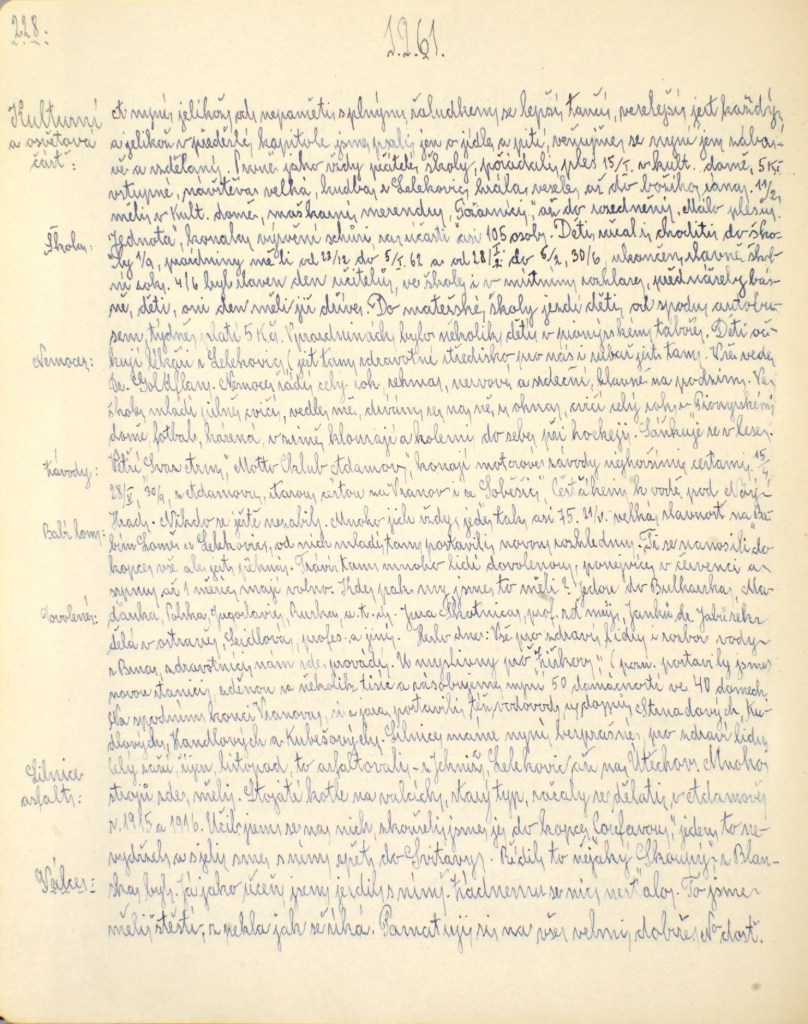 228.
1961.
Kulturní
a osvětová
část:
A nyní, jelikož od nepaměti s plným žaludkem se lepší tančí, veselejší jest každý,
a jelikož v předešlé kapitole jsme psali jen o jídle a pití, věnujme se nyní jen zába-
vě a vzdělání. Jako vždy učitelé školy, pořádali ples 15/I. v kult. domě, 5 Kčs
vstupné, návštěva velká, hudba z Lelekovic hrála vesele až do božího rána. 11/2
měli v Kult. domě, maškarní merendu, až do rozednění. Málo plesů.
Škola:
Jednota, konala výroční schůzi za účasti asi 105 osob. Děti začali choditi do ško-
ly 1/9, prázdniny měli od 23/12 do 5/I. 62 a od do 30/6, ukončen slavně škol-
ní rok. 4/6 byl slaven den učitelů, ve škole i v místním rozhlase, přednášely bás-
ně, děti, oni den měli již dříve. Do mateřské školy jezdí děti, od spodu autobu-
sem, týdně platí 5 Kčs. V prázdninách, bylo několik dětí v pionýrském táboře. Děti oč-
kují lékaři z Lelekovic, (jest tam zdravotní středisko pro nás i zubař jest tam. Vše vede
Nemoce:
Dr. Goldflam. Nemoce řádí celý rok, rehma, nervové a srdeční, hlavně na podzim. Ve
škole mládí pilně cvičí, vedle mě, dívám se na ně z okna, cvičí celý rok, v Pionýrském
domě fotbal, házená, v zimě klouzají a kolem do sebe při hockeji. Sáňkuje se v lese.
Závody:
"Moto Klub Adamov", konají motorové závody nejhoršími cestami. 15/4
z Adamova, starou cestou na Vranov i ze Soběšic, k vodě, pod Nový-
hrady. Nikdo se ještě nezabil. Mnoho jich vždy jede, tak asi 75. 21/V. velká slavnost na "Ba-
Babí lom:
bím Lomě" u Lelekovic, od nich mládež tam postavili, novou rozhlednu. Ti se nanosili do
kopce vše ale jistý pěkný. Tráví tam mnoho lidí dovolenou, ponejvíce v červenci a
srpnu, až 1 měsíc mají volno. Kdepak my jsme to měli? Jedou do Bulharska, Ma-
Dovolené:
ďarska, Polska, Jugoslavie, Ruska, a. t. d. Jura Skotnica, prof. zeť můj, Janků dr. Jabůrek
dělá v Ostravě, Seidlová, profes. a jiný. Heslo dnes: Vše pro zdraví lidí, i rozbor vody
z Brna, zdravotníci nám zde provádí. U myslivny při "Žižkov", (pozn. postavily jsme
novou stanici, za několik tisíc a zásobujeme nyní 50 domácností ve 40 domech.
Na spodním konci Vranova, si z jara postavili též vodovod, u Kuč-
dlových, Handlových a Kubešových. Silnice máme nyní bezprašné, pro zdraví lidu,
Silnice
asfalt:
celý září, říjen, listopad, to asfaltovaly z Jehnic, Lelekovic až na Útěchov. Mnoho
strojů zde měli. Stojaté kotle na válcích, starý typ, začaly se dělati v Adamově
r. 1915 a 1916. Učili jsme se na nich, zkoušeli jsme je do kopce jeden to ne-
vydržel a sjeli sme s ním zpět do Svitavy. Řídili to nějaký z Blan-
Válce:
ska byl. Já jako učeň jsem jezdil s ním. Žádnému se nic nestalo. To jsme
měli štěstí, z pekla jak se říká. Pamatuji si na vše velmi dobře. No dost.